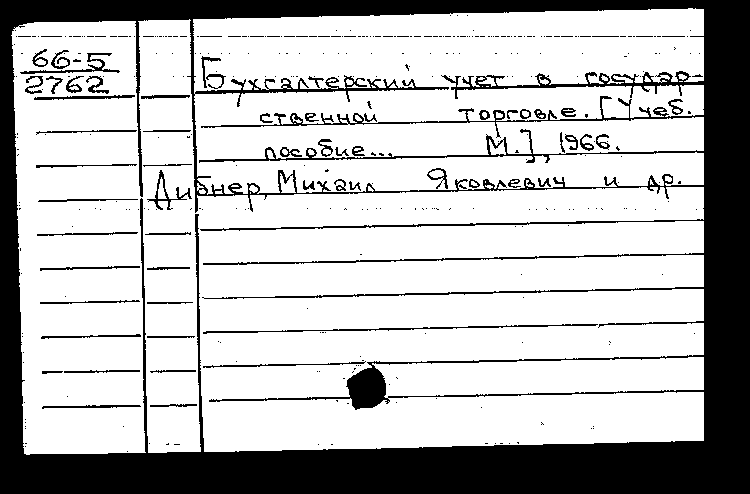 66-5
2762
Бухгалтерский учет в государ-
ственной торговле. [Учеб.
пособие... М.], 1966.
Дибнер, Михаил Яковлевич и др.